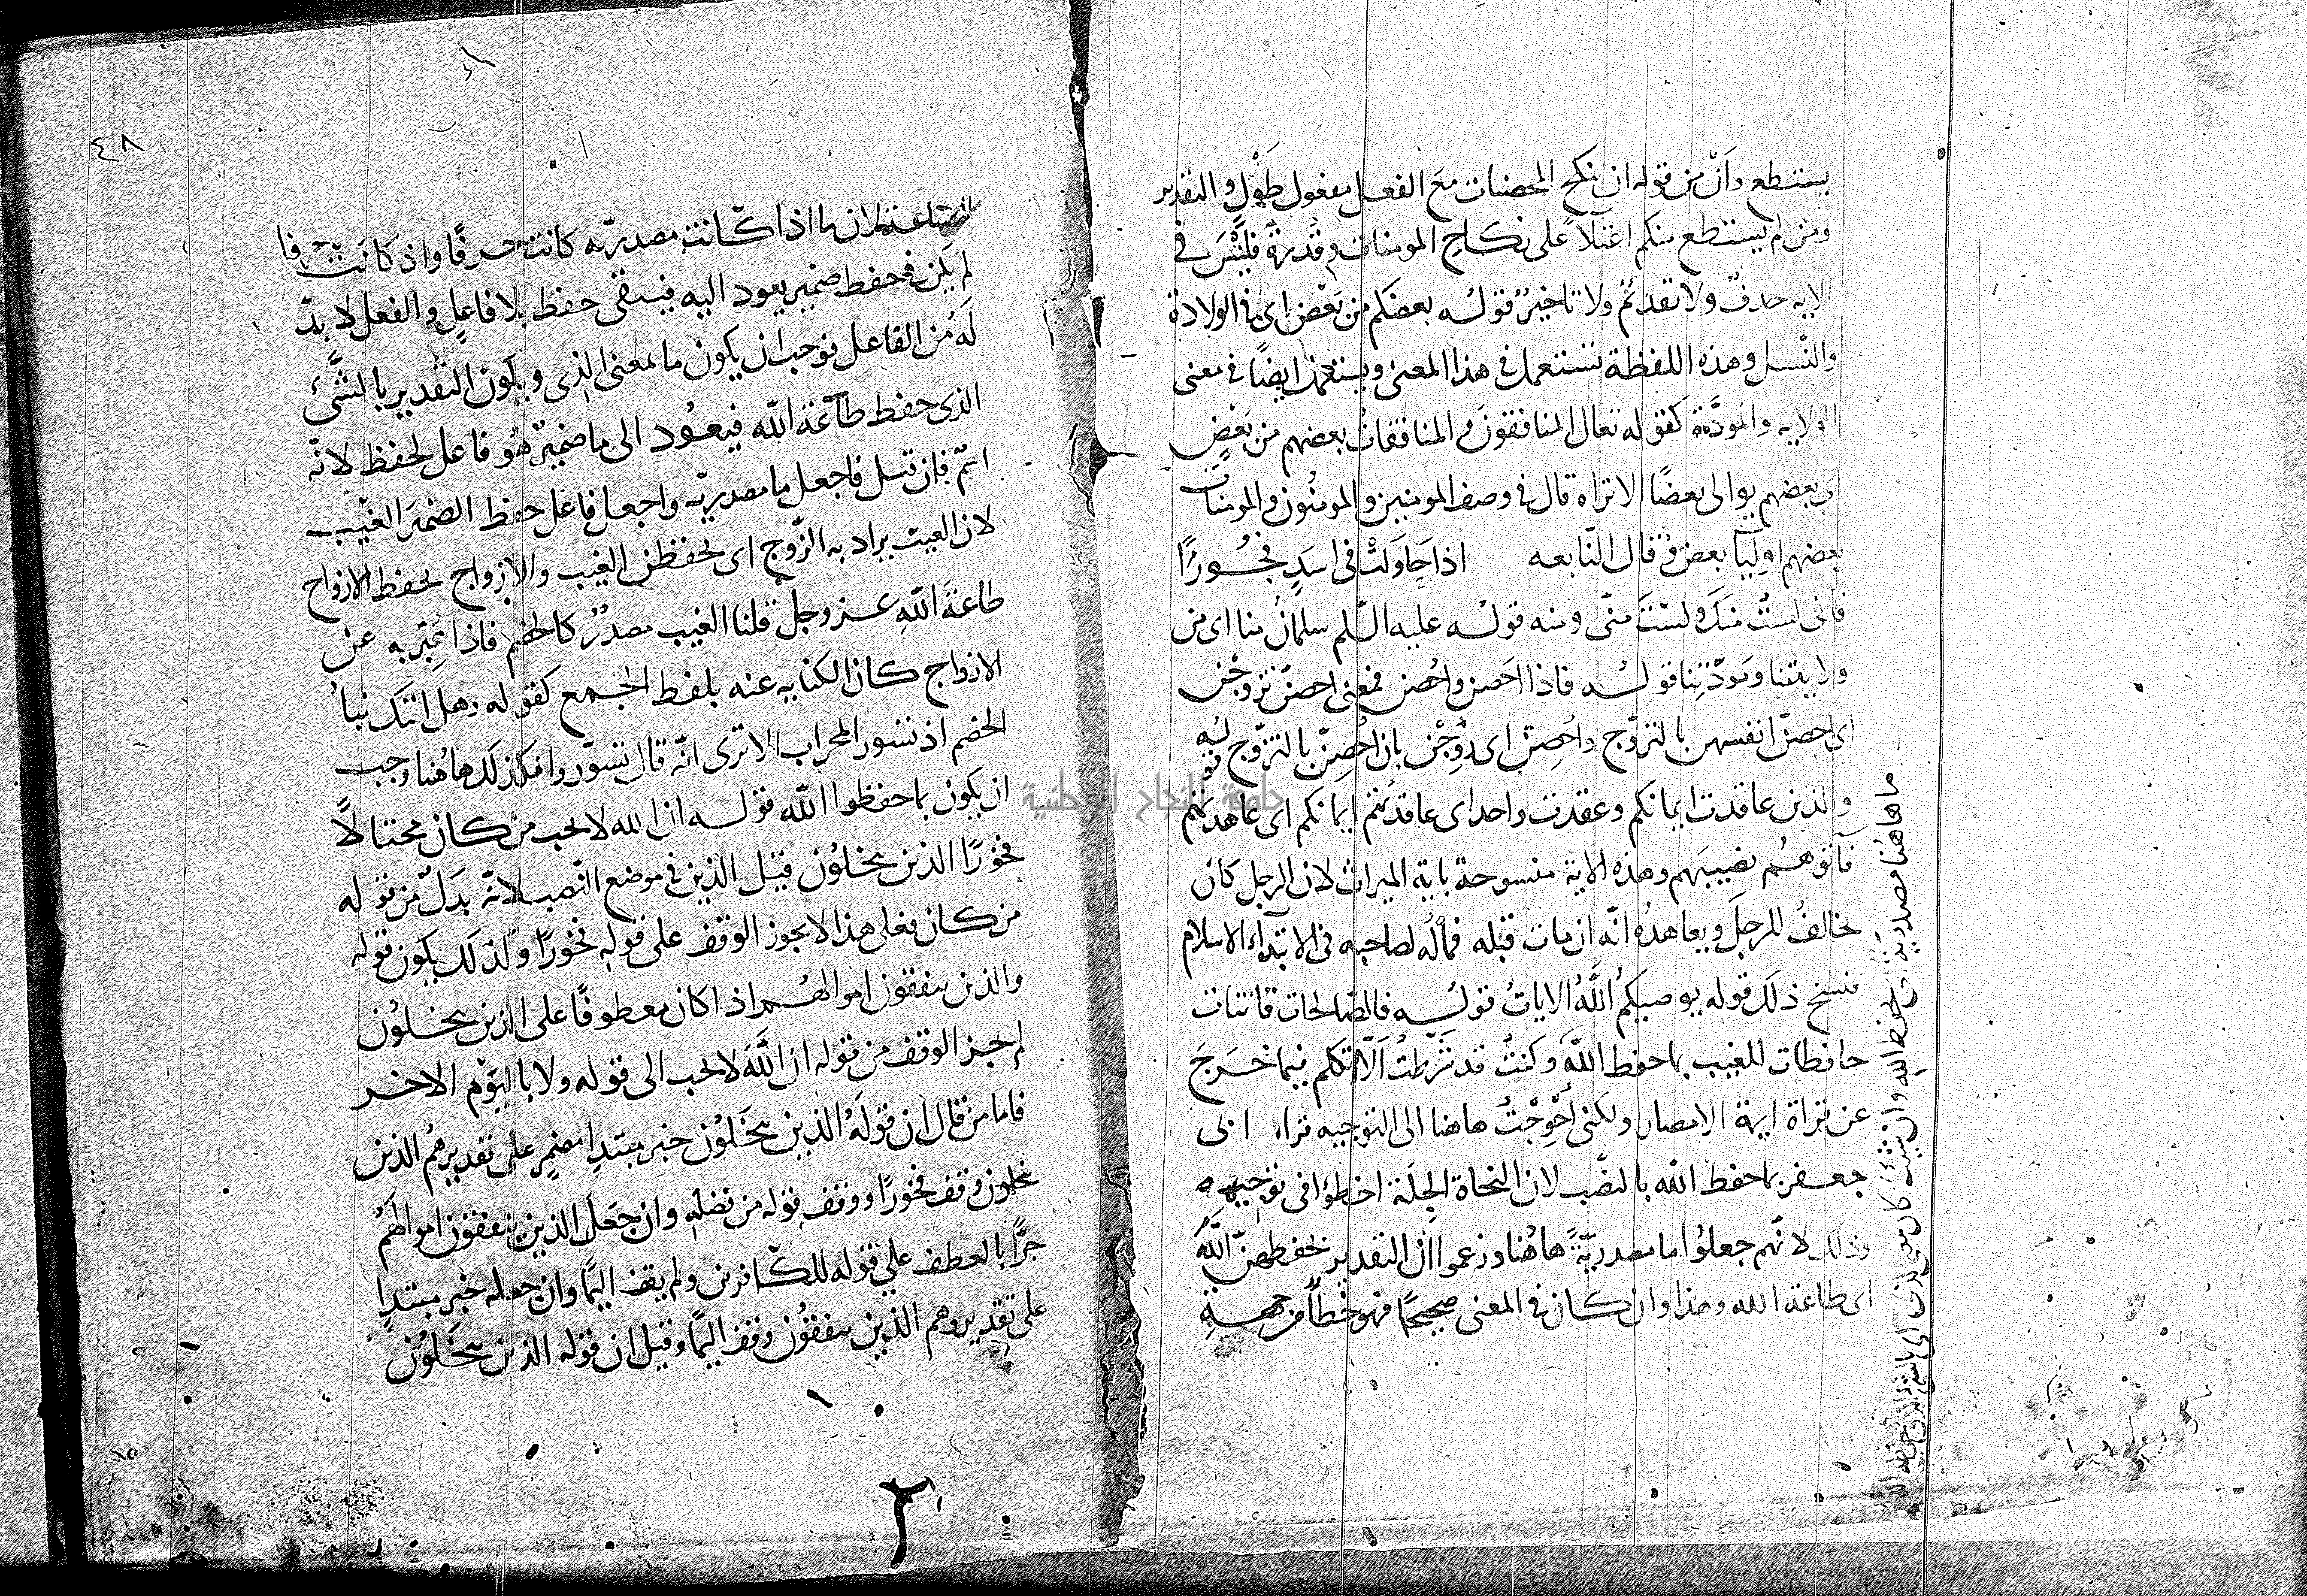 يستطع وأنّ من قوله ان ينكح المحصنات مع الفعل مفعول طَوْلٍ والتقدير
ومن لم يستطع منكم اغتلاً على نكاح المومنات اي قدرةً فليْسَ في
الايه حذفٌ ولا تقديمٌ ولا تاخيرٌ قولُه بعضكم من بَعْض اي في الولادة
والنّسل وهذه اللفظة تستعمل في هذا المعنى ويستعمل ايضًا في معنى
الولايه والموَدَّة كقوله تعالى المنافقونَ والمنافقاتُ بعضهم من بَعْضٍ
اي بعضهم يوالى بعضًا الا تراه قال في وصف المومنين والمومنُون والمومنات
بعضهم اولِيَآ بعضٍ وقال النّابغه اذا حَاوَلَتْ في اسَدٍ فجُورًا
فانى لستُ منكَ ولستَ منّى ومنه قولُه عليه السّلم سلمانُ منا اى من
ولايتِنا ومَودّتِنا قولُه فاذا احَصن واُحْصن فمعنى احصنّ تزوجْن
اى احصنّ انفسهن بالتزوّج واُحصِنّ اى زُوِّجْن بان اُحصِنّ بالتزوّج قوليه
والذين عاقدت ايمانكم وعقدت واحد اى عاقدتْم ايمانكم اى عاهدتْهم
فآتوهُم نصيبَهم وهذه الاية منسوخة باية الميراث لان الرجل كان
يحالفُ للرجلَ ويعاهدُه انّه ان مات قبله فمالُه لصاحبه في الابتدآء الاسلام
فنسخ ذلك قوله يوصيكمُ اللَّهُ الاياتُ قولُه فالصّالحات قانتات
حافظات للغيب بما حفظ اللَّهُ وكنتُ قد شرطتُ اَلّا اتكلم فيما خَرَجَ
عن قراة ايمة الامصار ولكنى اُحْوِجْتُ هاهنا الى التوجيه قراه ابى
جعفر بما حفظ اللّه بالنصّب لان النحاة الجِلَة اخطؤا في توجيهه
وذلك لانّهم جعلوُا ما مصدريّةً هاهُنا وزعموا انّ التقدير بحفظهنّ اللَّه
اى طاعة الله وهذا وان كان في المعنى صحيحًا فهو خطأٌ من جهةِ
ما هاهُنا مصدريّة اي بحفظ اللهِ وان شيتَ كان معنى الذى اى بالشئ الذى حفظه الله
٤٨
الصناعة لان ما اذا كانت مصدريّه كانت حرفًا واذ كانَتْ حرفا
لم يكن في حفظ ضمير يعود اليه فيبقى حفظ بلا فاعلٍ والفعل لا بدّ
لَهُ من الفاعل فوجب ان يكون ما بمعنى الذى ويكون التقدير بالشَّئ
الذى حفظ طاعَة اللّه فيعُود الى ما ضميرٌ هُو فاعل لحفظ لانّه
اسْمٌ فان قيل فاجعل ما مصدريّه واجعل فاعل حفظ الضميَر الغيْب
لان الغيب يراد به الزّوج اى بحفظهن الغيب والازواج بحفظ الازواج
طاعَةَ اللّهِ عز وجلّ قلنا الغيب مصدرٌ كالخصْم فاذا عُبّر به عن
الازواج كان الكنايه عنه بلفظ الجمع كقوله وهل اتىكَ نبأُ
الخصم اذ تسور المحراب الا ترى انّه قال تسوّروا فكذلك هاهُنا وجب
ان يكون بما حفظوا اللّه قولُه ان الله لا يحب من كان مختالاً
فخورًا الذين يبخلوُن قيل الذين في موضع النّصب لانّه بَدَلٌ من قوله
من كان فعلى هذا لا يجوز الوقف على قوله فخورًا وكذلك يكون قوله
والذين ينفقون اموالهُم اذا كان معطوفًا على الذين يبخلوُن
لم يجز الوقف من قوله ان اللَّه لا يحب الى قوله ولا باليَوْم الاخر
فاما من قال ان قولَهُ الذين يبخَلوُن خبر مبتدإ مضمرٍ على تقدير هُم الذين
يبخلون وقف فخورًا ووقف قوله من فضله وان جَعَلَ الذين ينفقون اموالهُم
جرًّا بالعطف على قوله للكافرين ولم يقف اليمًا وان جعله خبر مبتدإٍ
على تقدير وهم الذين ينفقوُن وقف اليمًا وقيل ان قوله الذين يبخَلوُن
جامعة النجاح الوطنية